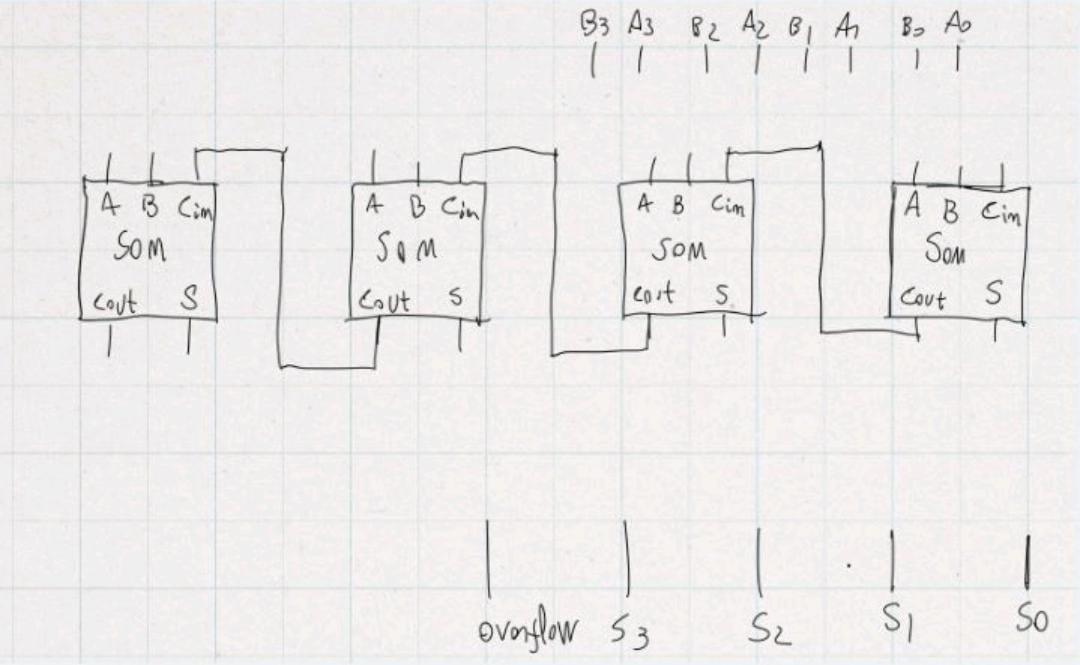 B3 A3 B2 A2 B1 A1 B0 A0
A B Cin A B Cin A B Cin A B Cin
SOM SOM SOM SOM
Cout S Cout S Cout S Cout S
overflow S3 S2 S1 S0